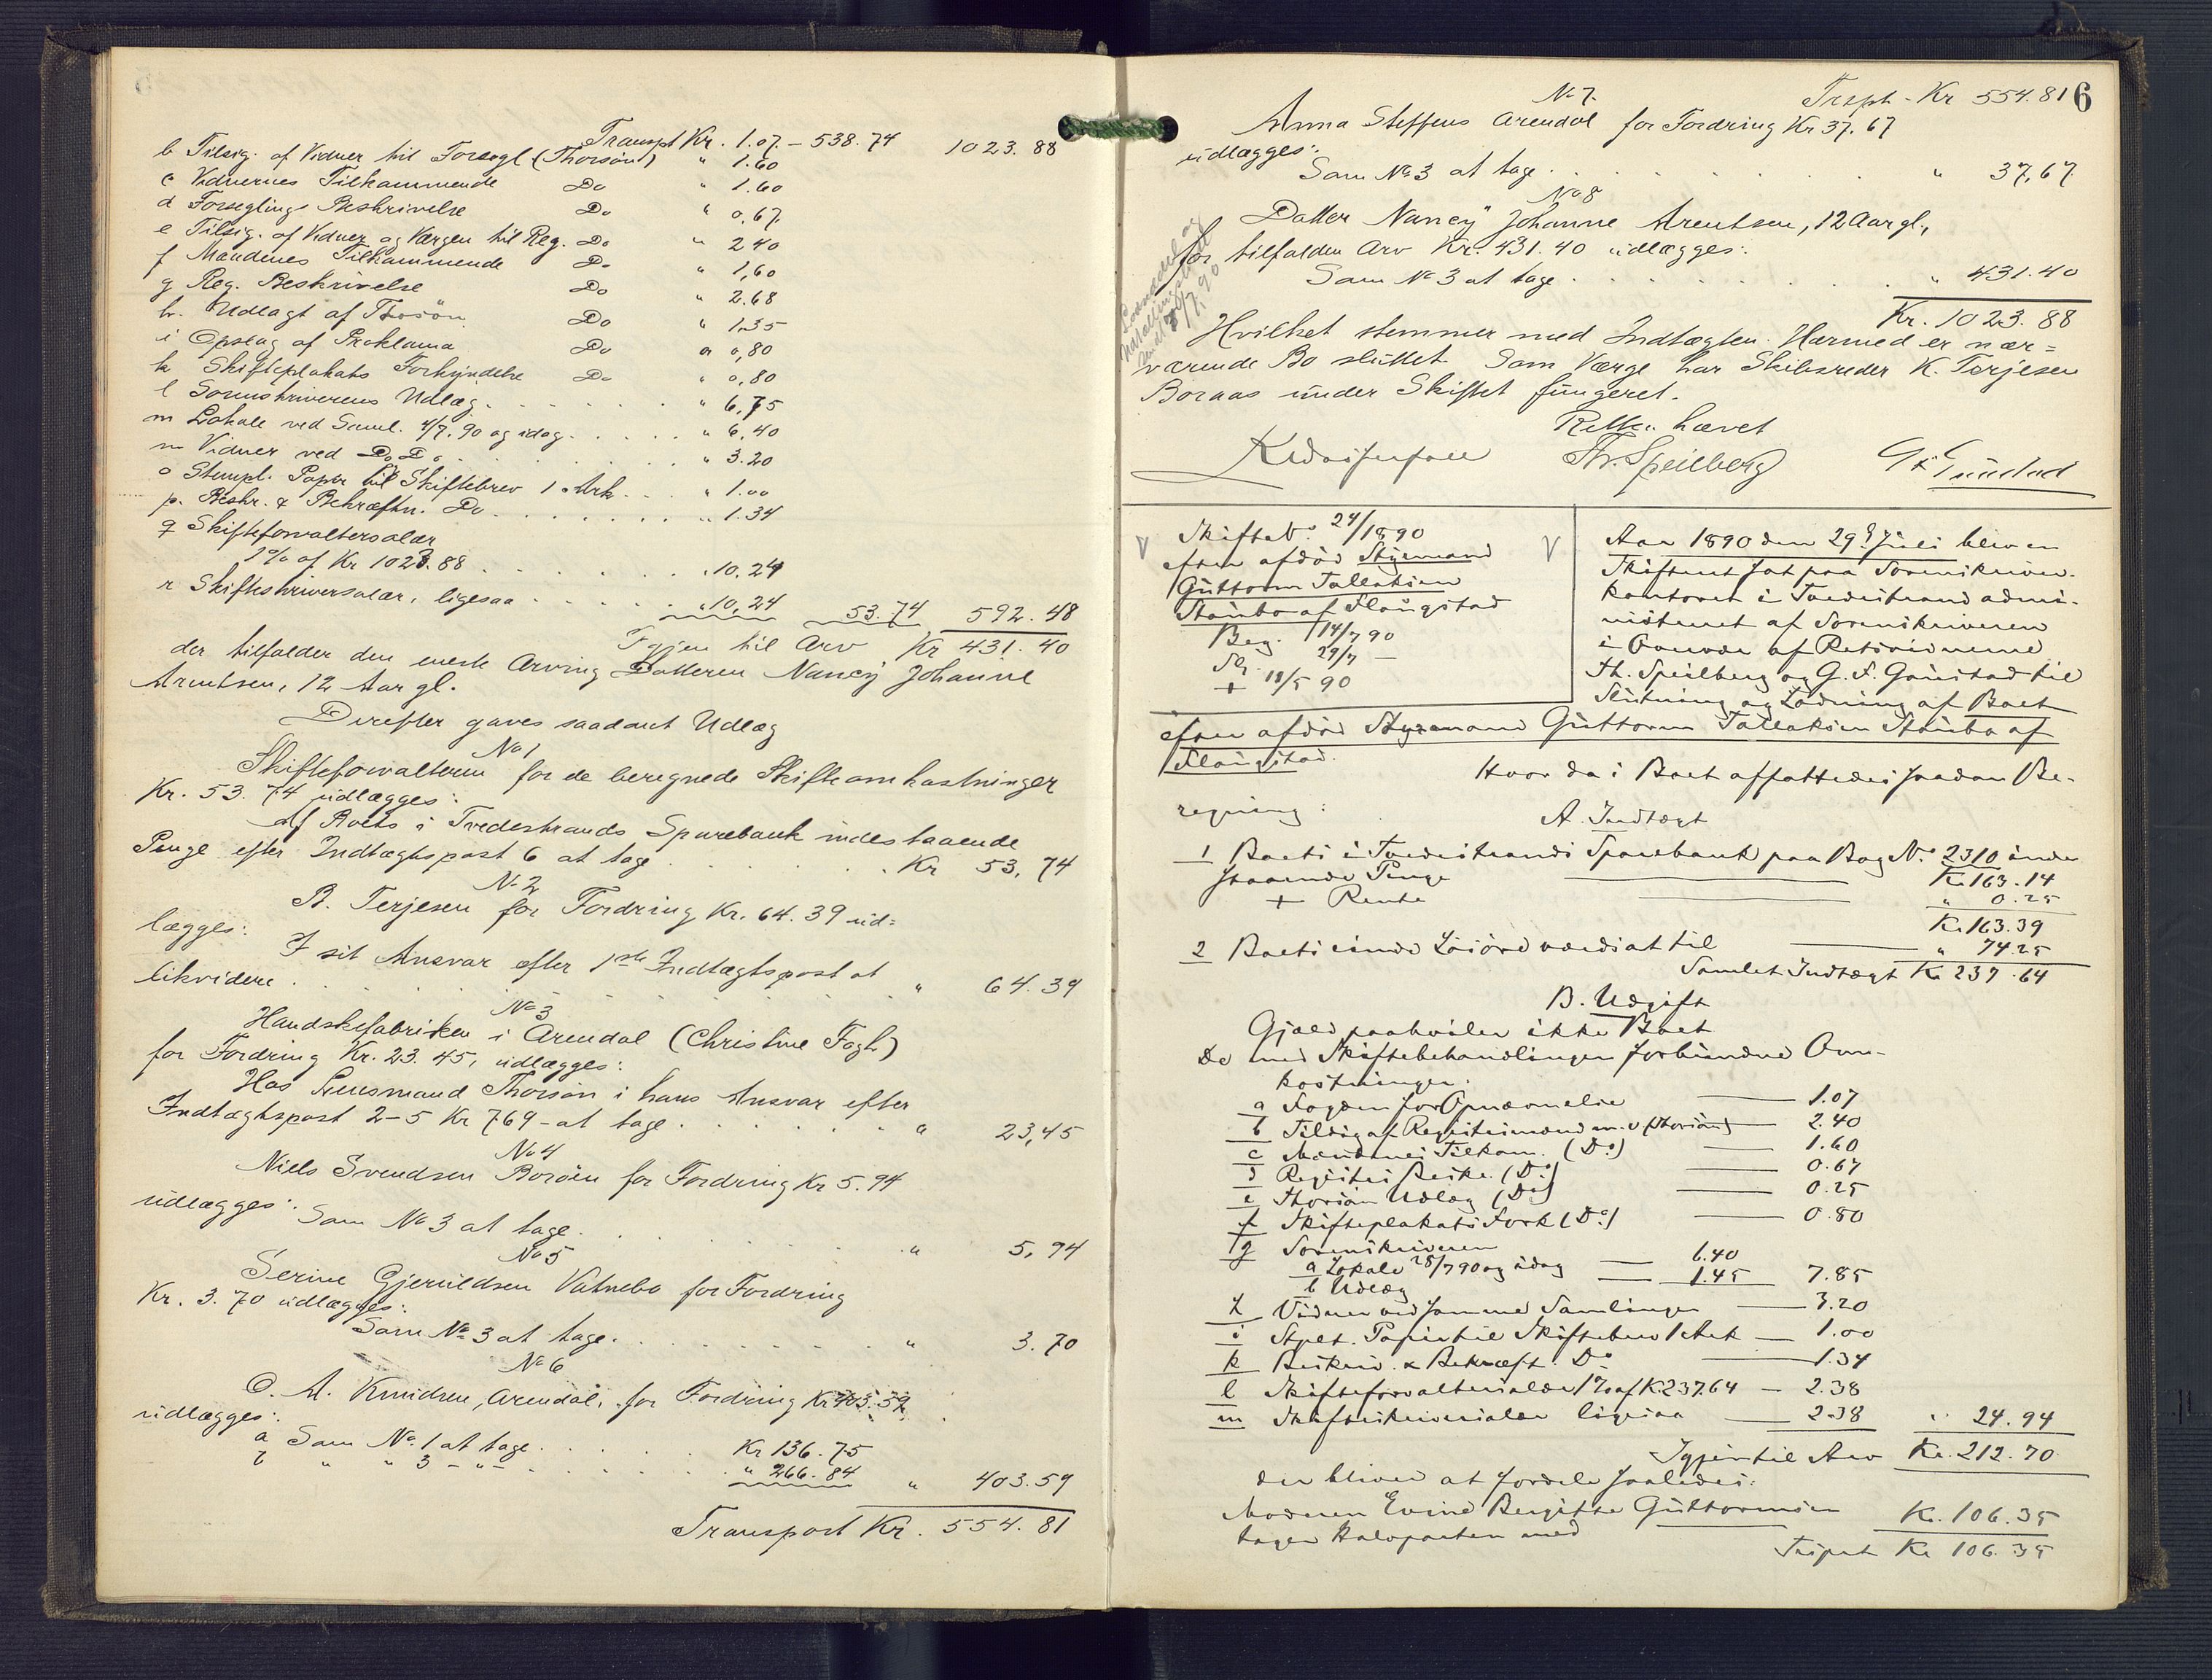 Transpt Kr. 1.07 – 538.74 1023.88
b Tilsig. af Vidner til Forsegl (Thorsön) " 1.60
c Vidnernes Tilkommende Do " 1.60
d Forseglings Beskrivelse Do " 0,67
e Tilsig. af Vidner og Værgen til Reg. Do " 240
f Mændenes Tilkommende Do " 1,60
g Reg. Beskrivelse Do " 2.68
h. Udlagt af Thorsön Do " 1.35
i Opslag af Proklama Do " 0,80
k Skifteplakats Forkyndelse Do " 0,80
l Sorenskriverens Udlæg . . . " 6,75
m Lokale ved Saml. 4/7.90 og idag . . . " 6,40
n Vidner ved Do Do . . . " 3.20
o Stempl. Papir til Skiftebrev 1 Ark . . . " 1.00
p. Beskr. & Bekræftn. Do . . . " 1.34
q Skifteforvaltersalær
1% af Kr 1023.88 . . . " 10,24
r Skifteskriversalær, ligesaa . . . " 10,24 53.74 592.48
Igjen til Arv Kr 431.40
der tilfalder den eneste Arving Datteren Nancy Johanne
Arentsen, 12 Aar gl.
Derefter gaves saadant Udlæg
No 1
Skifteforvalteren for de beregnede Skifteomkostninger
Kr. 53.74 udlægges:
Af Boets i Tvedestrands Sparebank indestaaende
Penge efter Indtægtspost 6 at tage . . . Kr 53,74
No 2
B. Terjesen for Fordring Kr. 64.39 ud=
lægges:
I sit Ansvar efter 1ste Indtægtspost at
likvidere . . . " 64.39
No 3
Handskefabriken i Arendal (Christine Fogh)
for Fordring Kr. 23.45, udlægges:
Hos Lensmand Thorsön i hans Ansvar efter
Indtægtspost 2–5 Kr 769 – at tage . . . " 23,45
No 4
Niels Svendsen Borøen for Fordring Kr 5.94
udlægges:
Som No 3 at tage . . . " 5,94
No 5
Serine Gjeruldsen Vatnebo for Fordring
Kr. 3.70 udlægges:
Som No 3 at tage . . . " 3.70
No 6
O. A. Knudsen, Arendal, for Fordring Kr 403.59
udlægges:
a Som No. 1 at tage . . . Kr 136.75
b " " 3 – " – . . . " 266.84 " 403.59
Transport Kr. 554.81
6
Trspt – Kr 554.81
No 7.
Anna Steffens Arendal for Fordring Kr 37.67
udlægges:
Som No 3 at tage . . . " 37,67
No 8
Datter Nancy Johanne Arentsen, 12 Aar gl.,
for tilfalden Arv Kr. 431.40 udlægges:
Som No 3 at tage . . . " 431.40
Kr. 1023.88
Hvilket stemmer med Indtægten. Hermed er nær=
værende Bo sluttet. Som Værge har Skibsreder K. Terjesen
Boraas under Skiftet fungeret.
Retten hævet
Th. Speilberg
G F Gunstad
Skifte No. 24/1890
efter afdöd Styrmand
Guttorm Tallaksen
Stömbo af Flangstad
Beg. 14/7 90
Sl. 29/7 –
+ 18/5 90
Aar 1890 den 29de Juli blev en
Skifteret sat paa Sorenskriver-
kontoret i Tvedestrand admi-
nistreret af Sorenskriveren
i Overvær af Retsvidnerne
Th. Speilberg og G. F. Gunstad til
Slutning og Lodning af Boet
efter afdöd Styrmand Guttorm Tallaksen Stömbo af
Flangstad.
Hvor da i Boet affattedes saadan Be-
regning:
A. Indtægt
1 Boets i Tvedestrands Sparebank paa Bog No. 2310 inde
staaende Penge Kr. 163.14
+ Rente " 0.25
Kr. 163.39
2 Boets einde Lösöre værdiat til " 74.25
Samlet Indtægt Kr 237.64
B. Udgift
Gjæld paahviler ikke Boet
De med Skiftebehandlingen forbundne Om-
kostninger:
a Fogden for 1.07
b Tilsig af Registermænd m. v (Thorsön) 2.40
c Mændenes Tilkom. (Do) 1.60
d Registers Beskr. (Do) 0.67
e Thorsöns Udlæg (Do) 0.25
f Skifteplakats Fork (Do) 0.80
g Sorenskriveren
a Lokale 28/7 90 og idag 6.40
b Udlæg 1.45 7.85
h Vidner ved samme Samlinger 3.20
i Stplt. Papir til Skiftebrev 1 Ark 1.00
k Beskriv. & Bekræft. Do 1.34
l Skifteforvaltersalær 1% af K. 237.64 – 2.38
m Skifteskriversalær ligesaa 2.38 " 24.94
Igjen til Arv Kr. 212.70
der bliver at fordele saaledes:
Moderen Evine Birgitte Guttormsen
tager Halvparten med Kr. 106.35
Trspt Kr 106.35